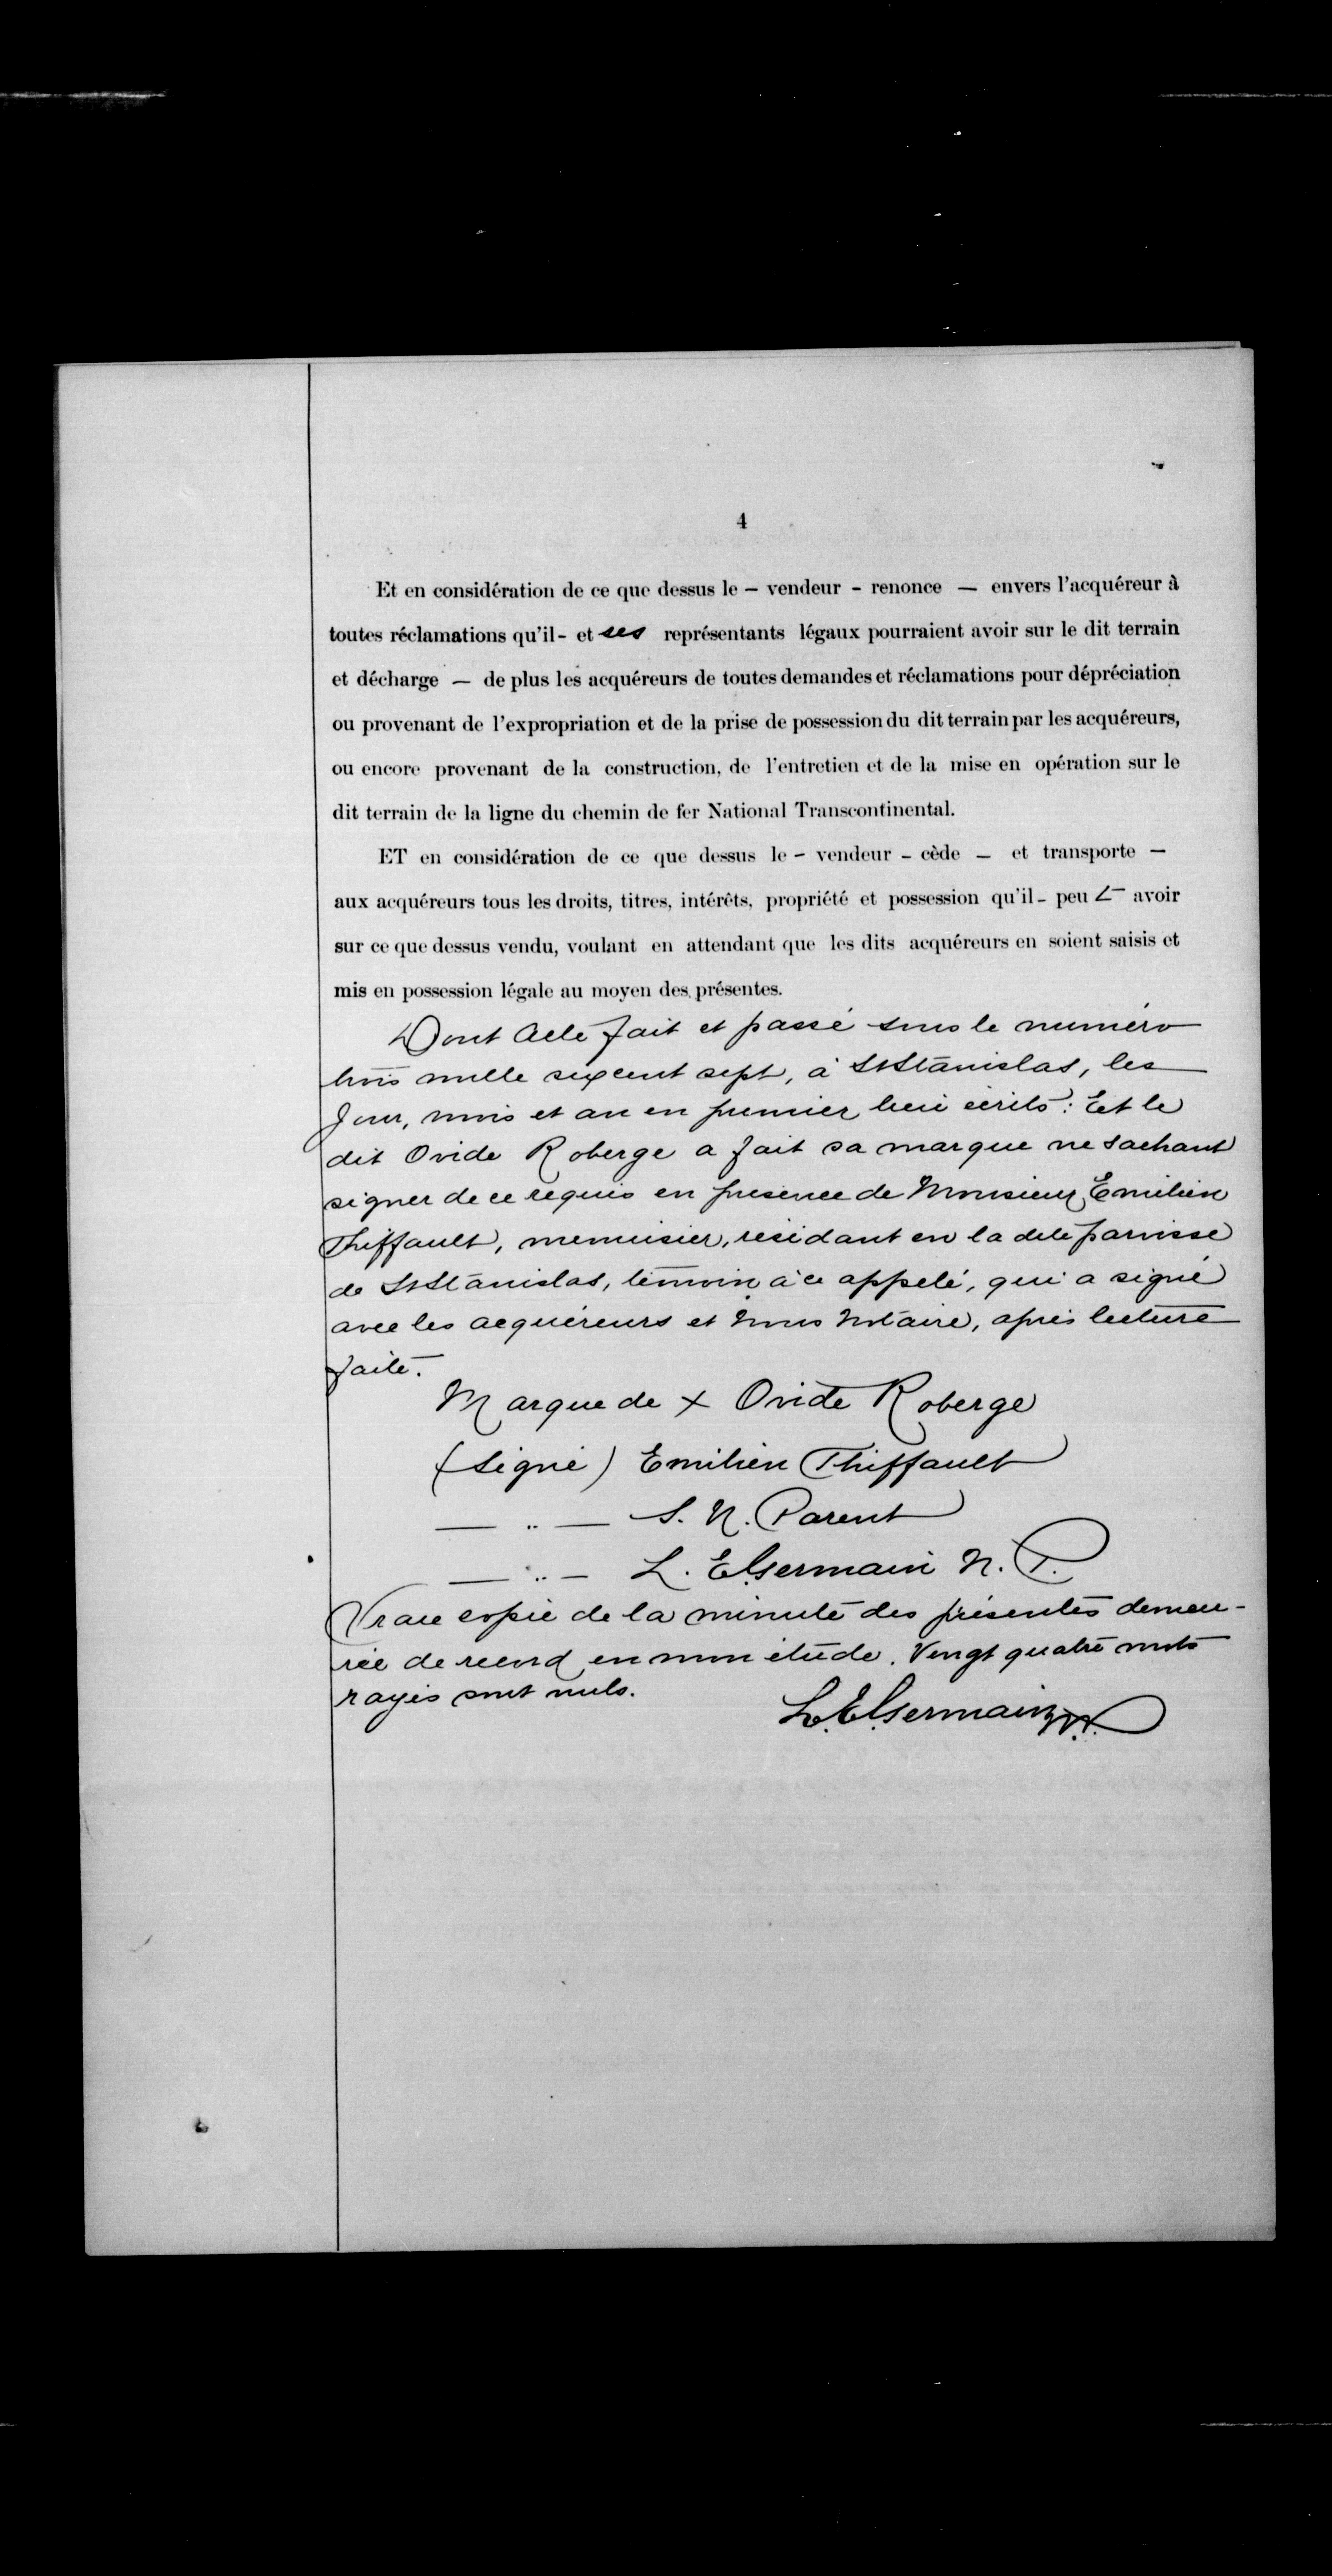 4
Et en considération de ce que dessus le – vendeur - renonce — envers l'acquéreur à
toutes réclamations qu'il- et ses représentants légaux pourraient avoir sur le dit terrain
et décharge — de plus les acquéreurs de toutes demandes et réclamations pour dépréciation
ou provenant de l'expropriation et de la prise de possession du dit terrain par les acquéreurs,
ou encore provenant de la construction, de l'entretien et de la mise en opération sur le
dit terrain de la ligne du chemin de fer National Transcontinental.
ET en considération de ce que dessus le - vendeur - cède — et transporte —
aux acquéreurs tous les droits, titres, intérêts, propriété et possession qu'il - peut avoir
sur ce que dessus vendu, voulant en attendant que les dits acquéreurs en soient saisis et
mis en possession légale au moyen des présentes.
Dont Acte fait et passé sous le numéro
trois mille six cent sept, à St Stanislas, les
Jour, mois et an en premier lieu écrits: Et le
dit Ovide Roberge a fait sa marque ne sachant
signer de ce requis en présence de Monsieur Emilien
Thiffault, menuisier, résidant en la dite paroisse
de St Stanislas, témoin à ce appelé, qui a signé
avec les acquéreurs et Nous Notaire, après lecture
faite.
Marque de + Ovide Roberge
(Signé) Emilien Thiffault
— " — S. N. Parent
— " — L. E. Germain N. P.
Vraie copie de la minute des présentes demeu-
rée de record en mon étude. Vingt quatre mots
rayés sont nuls.
L. E. Germain N.P.